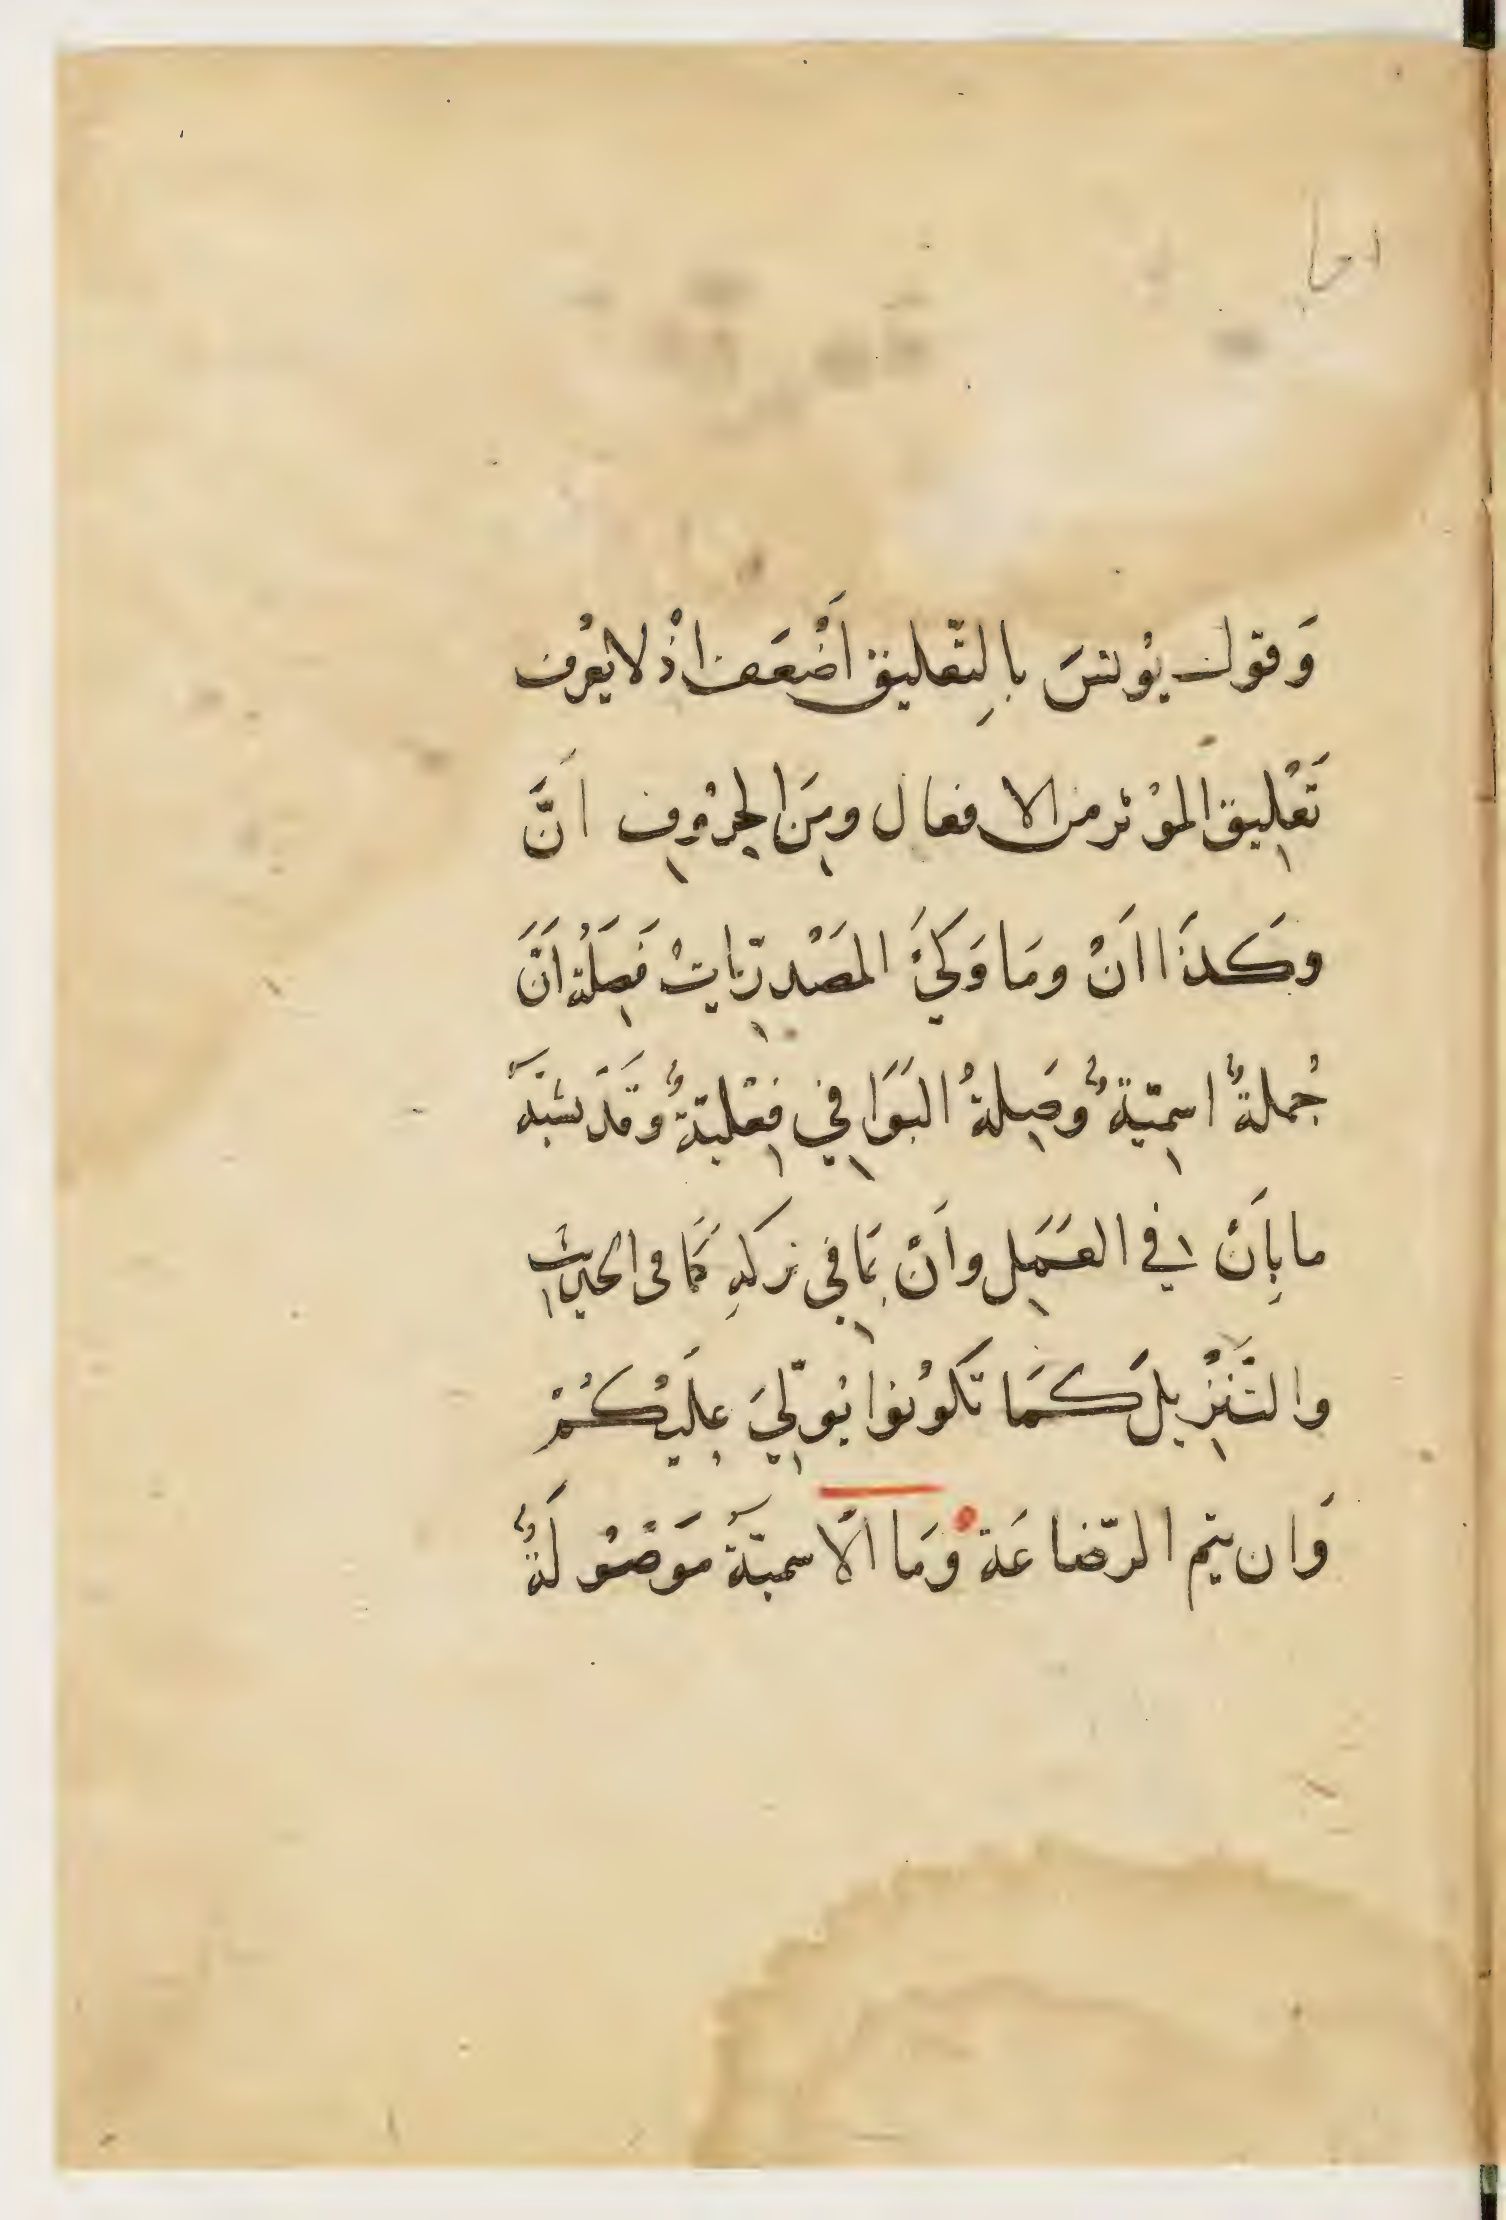 وَقَوْل يُونُسَ بالِتّعليق أضْعَف اذْ لا يعْرف
تَعْلِيق المؤثر من الافعال ومِنَ الحُرُوفِ انَّ
وكَذَا اَنْ ومَا وَكَيْ المَصْدرّياتْ فَصِلَةُ اَنَّ
جُملةٌ اسمِيّةٌ وصِلةُ البَوَاقِي فِعْليّةٌ وقَدْ تشَبَّهَ
ما بِاَنْ في العَمَلِ واَنْ بمَا في تركهِ كمَا في الحَديث
والتَّنْزِيل كَمَا تَكُونُوا يُولّيَ عَلَيْكُمْ
وَان يتم الرّضاعَة ومَا الاسميّةُ مَوْصُولَةٌ